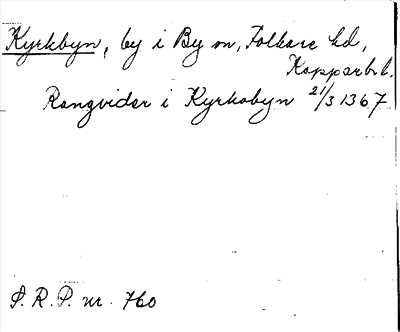 Kyrkbyn, by i By sn, Folkare hd,
Kopparb. l.
Rangvider i Kyrkobyn 21/3 1367
S. R. P. nr. 760